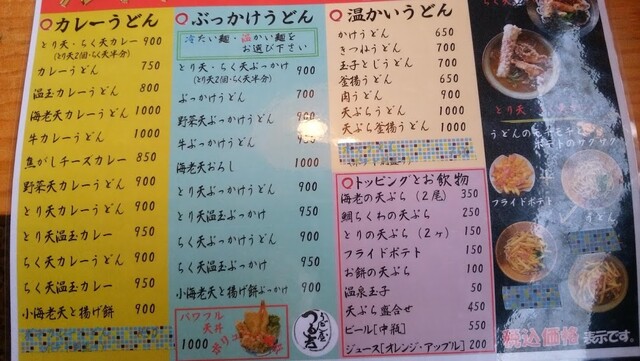 ○カレーうどん
とり天・らく天カレー 900
(とり天2個・らく天半分)
カレーうどん 750
温玉カレーうどん 800
海老天カレーうどん 1000
牛カレーうどん 1000
焦がしチーズカレー 850
野菜天カレーうどん 900
とり天カレーうどん 900
とり天温玉カレー 950
らく天カレーうどん 900
らく天温玉カレー 950
小海老天と揚げ餅 900
○ぶっかけうどん
冷たい麺・温かい麺を
お選び下さい
とり天・らく天ぶっかけ 900
(とり天2個・らく天半分)
ぶっかけうどん 700
野菜天ぶっかけうどん
牛ぶっかけうどん
海老天おろし 1000
とり天ぶっかけうどん 900
とり天温玉ぶっかけ 950
らく天ぶっかけうどん 900
らく天温玉ぶっかけ 950
小海老天と揚げ餅ぶっかけ 900
パワフル
天丼
1000
○温かいうどん
かけうどん 650
きつねうどん 700
玉子とじうどん 700
釜揚うどん 650
肉うどん 900
天ぷらうどん 1000
天ぷら釜揚うどん 1000
○トッピングとお飲物
海老の天ぷら(2尾) 350
鯛ちくわの天ぷら 250
とりの天ぷら(2ヶ) 150
フライドポテト 150
お餅の天ぷら 100
温泉玉子 50
天ぷら盛合せ 450
ビール[中瓶] 550
ジュース[オレンジ・アップル] 200
フライドポテト
うどん
税込価格表示です。